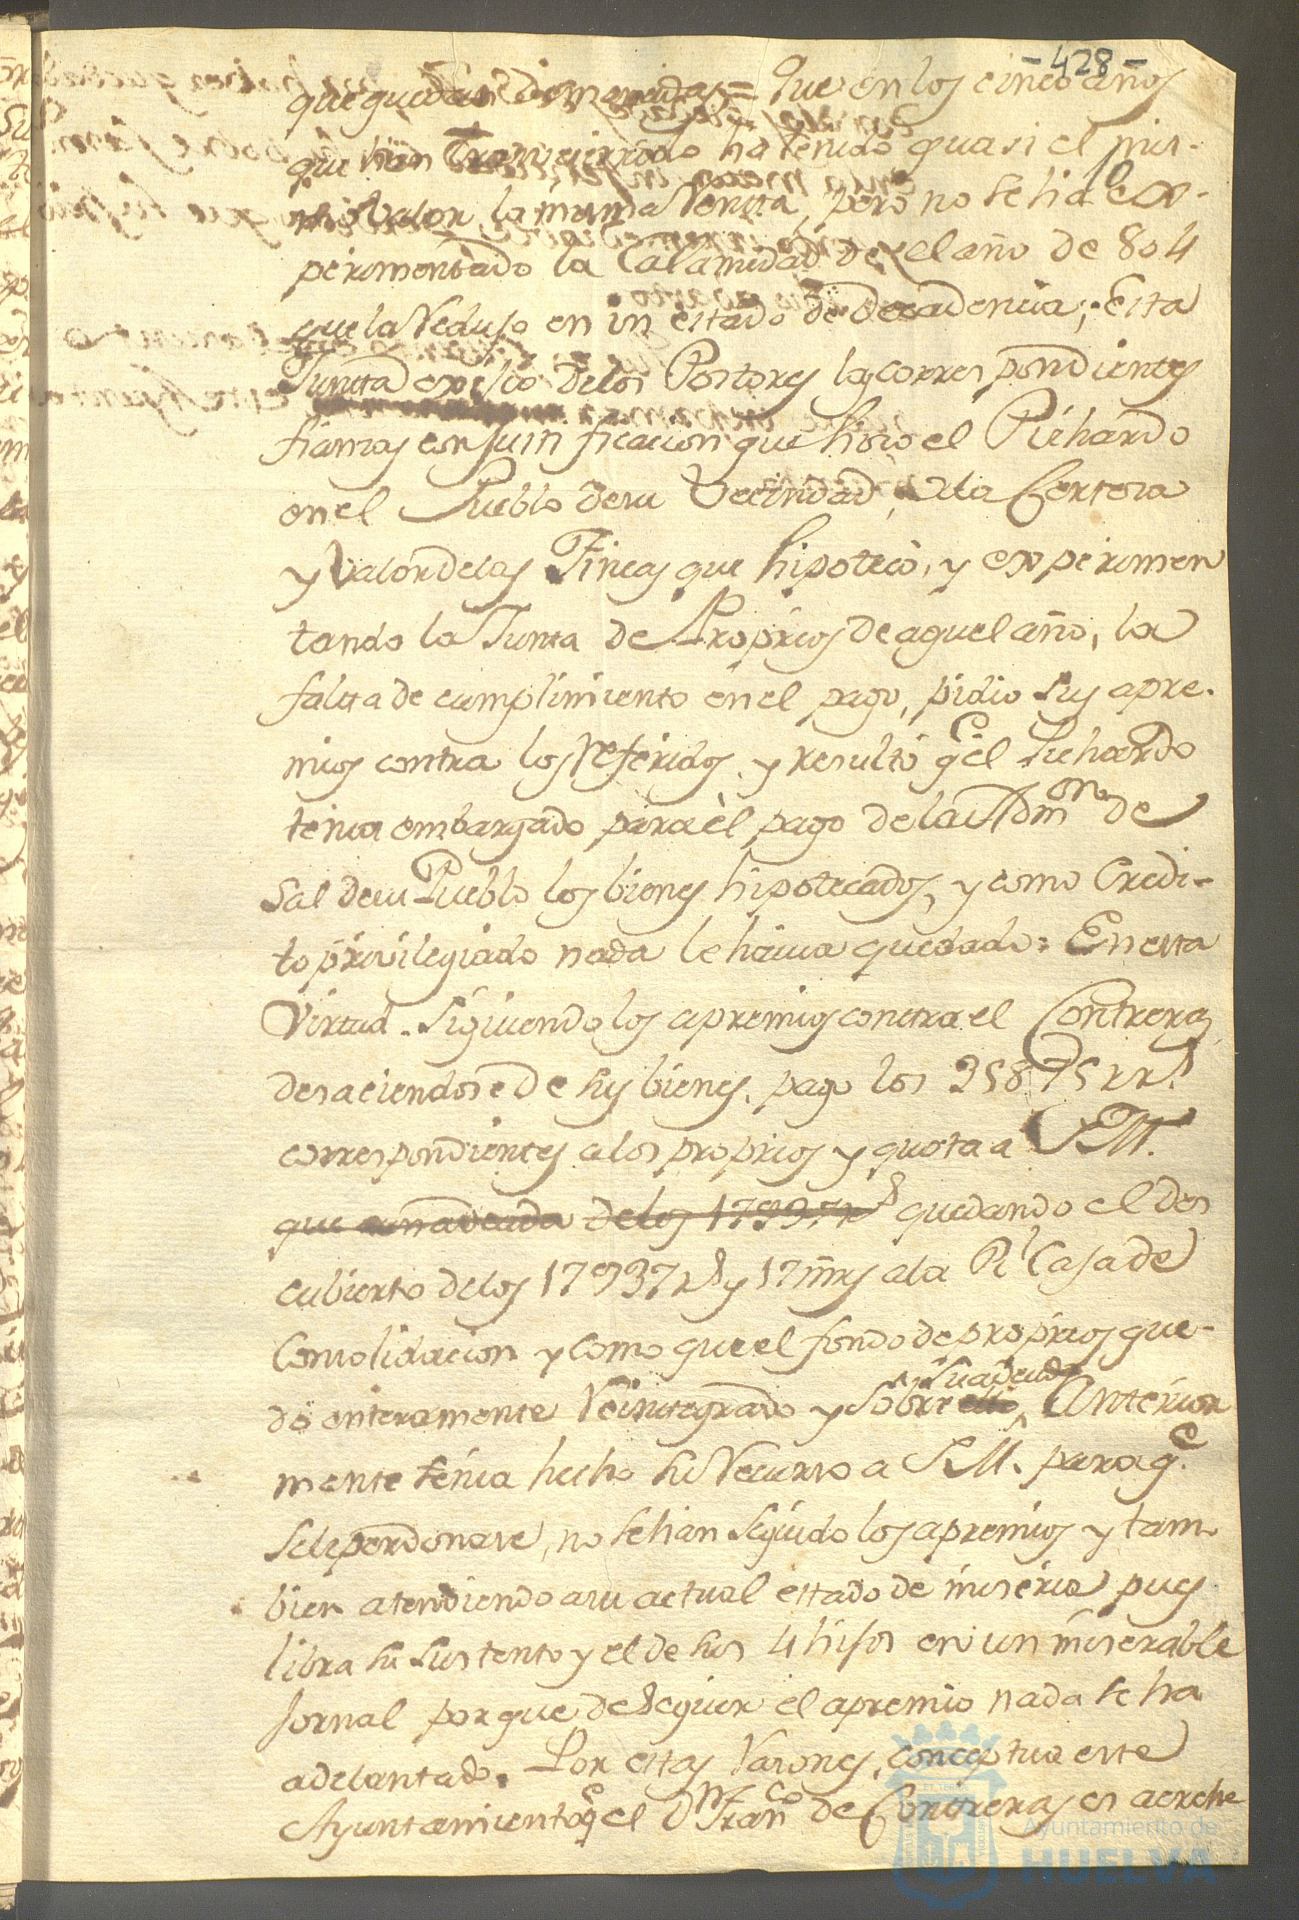 -428-
que quedan = Que en los cinco años
que han transcurrido ha tenido quasi el mis-
mo valor la misma Renta, pero no se ha ex-
perimentado la Calamidad del año de 804
que la Redujo en un estado de decadencia; Esta
Juncta exijio delos Postores las correspondientes
fianzas con justificacion que hiso el Pichardo
en el Pueblo desu Vecindad, dela Certesa
y Valor delas Fincas que hipoteco, y experimen
tando la Junta de Proprios de aquel año, la
falta de cumplimiento en el pago, pidio sus apre-
mios contra los Referidos, y resultó qe el Pichardo
tenia embargado para el pago dela Admon de
Sal desu Pueblo los bienes hipotecados, y como Credi-
to privilegiado nada le havia quedado: En esta
Virtud. Siguiendo los apremios contra el Contreras
desaciendose de sus bienes, pago los 35875 rrs
correspondientes alos proprios y quota a S.M.
que delos 17937 rs quedando el des
cubierto delos 17937 rs y 17 mrs ala Rl Casa de
Consolidacion y como que el fondo de proprios que-
dó enteramente Reintegrado y sobre su adeudo Anterior
mente tenia hecho su Recurso a S.M. para qe
sele perdonase, no se han seguido los apremios y tam
bien atendiendo asu actual estado de miseria pues
libra su sustento y el de sus 4 hijos en un miserable
Jornal porque de seguir el apremio nada se ha
adelantado. Por estas Rasones, conceptua este
Ayuntamiento qe el Dn Franco de Contreras es acrehe
Ayuntamiento de
HUELVA